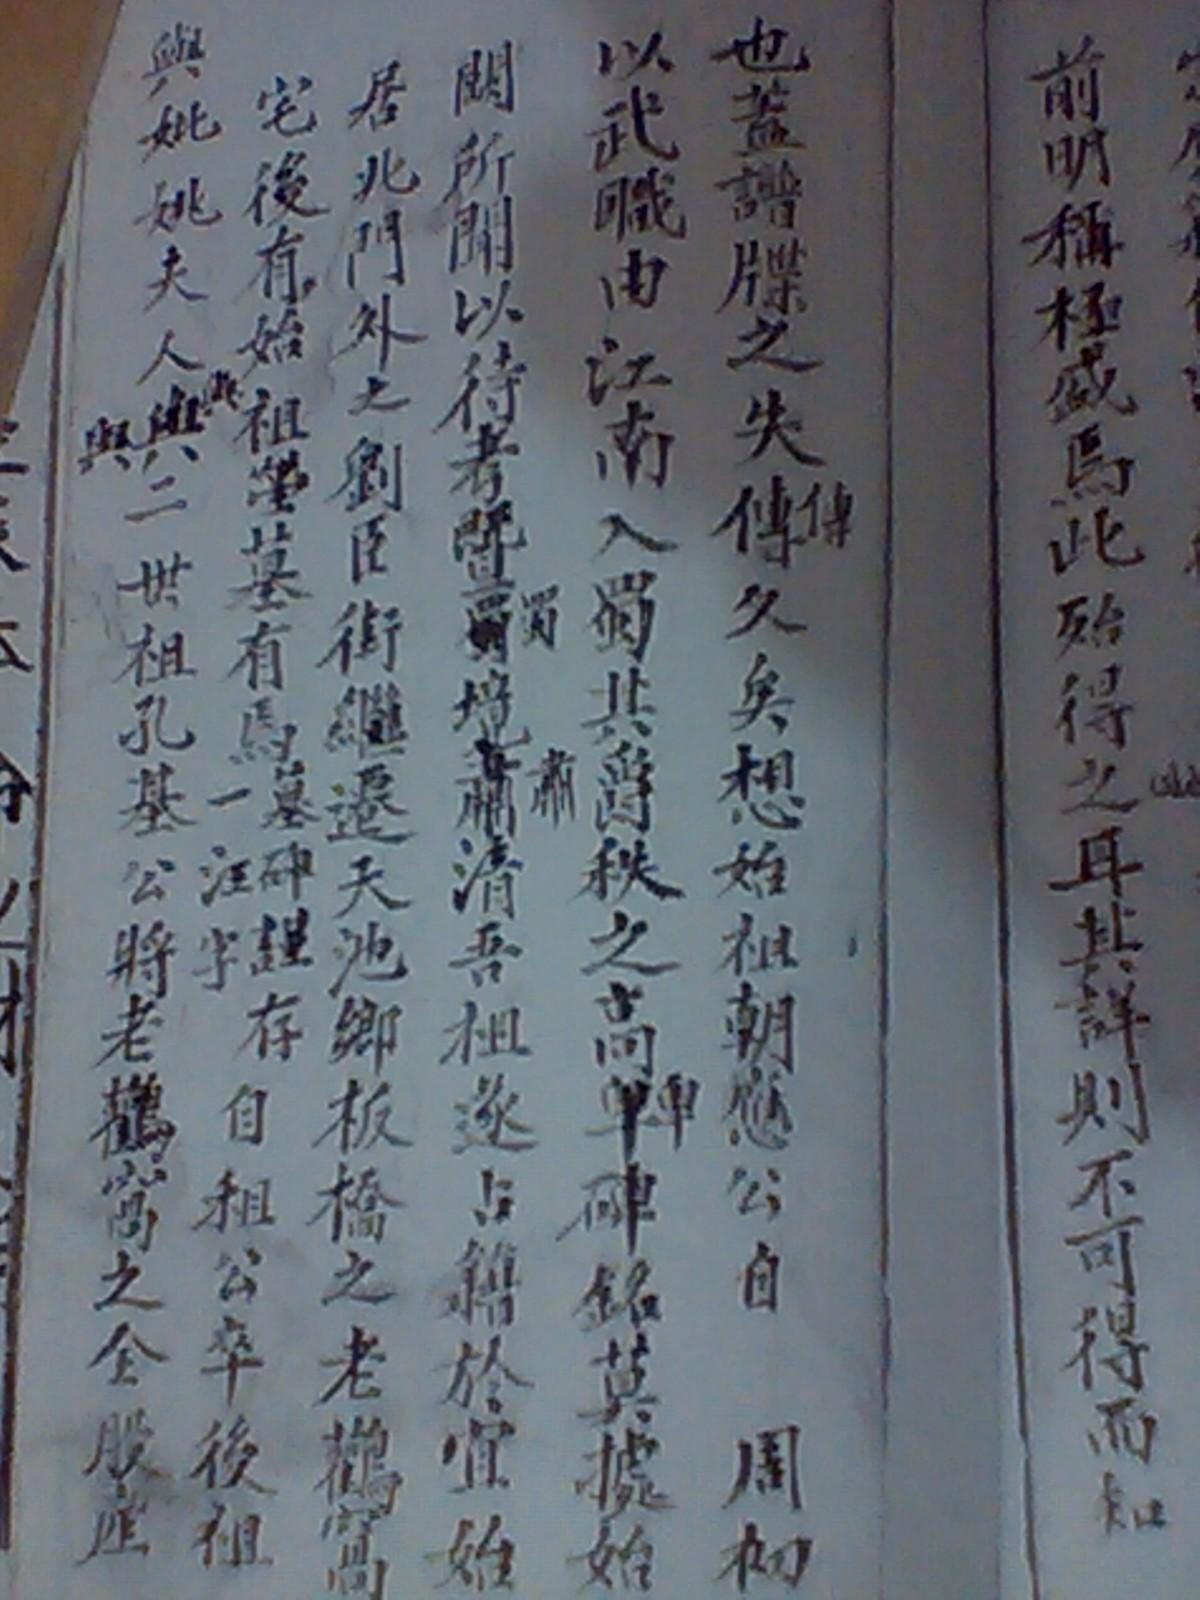 前明稱極盛焉此殆得之耳其詳則不可得而知
也蓋譜牒之失傳傳久矣想始祖朝應公自 周初
以武職由江南入蜀其爵秩之高卑卑碑銘莫據始
闕所聞以待考暨蜀蜀境肅肅清吾祖遂占籍於宜始
居北門外之劉臣街繼遷天池鄉板橋之老鸛窩
宅後有始祖塋墓有馬一墓碑謹存自祖公卒後祖
汪字
與姚姚夫人與與二世祖孔基公將老鸛窩之全股座